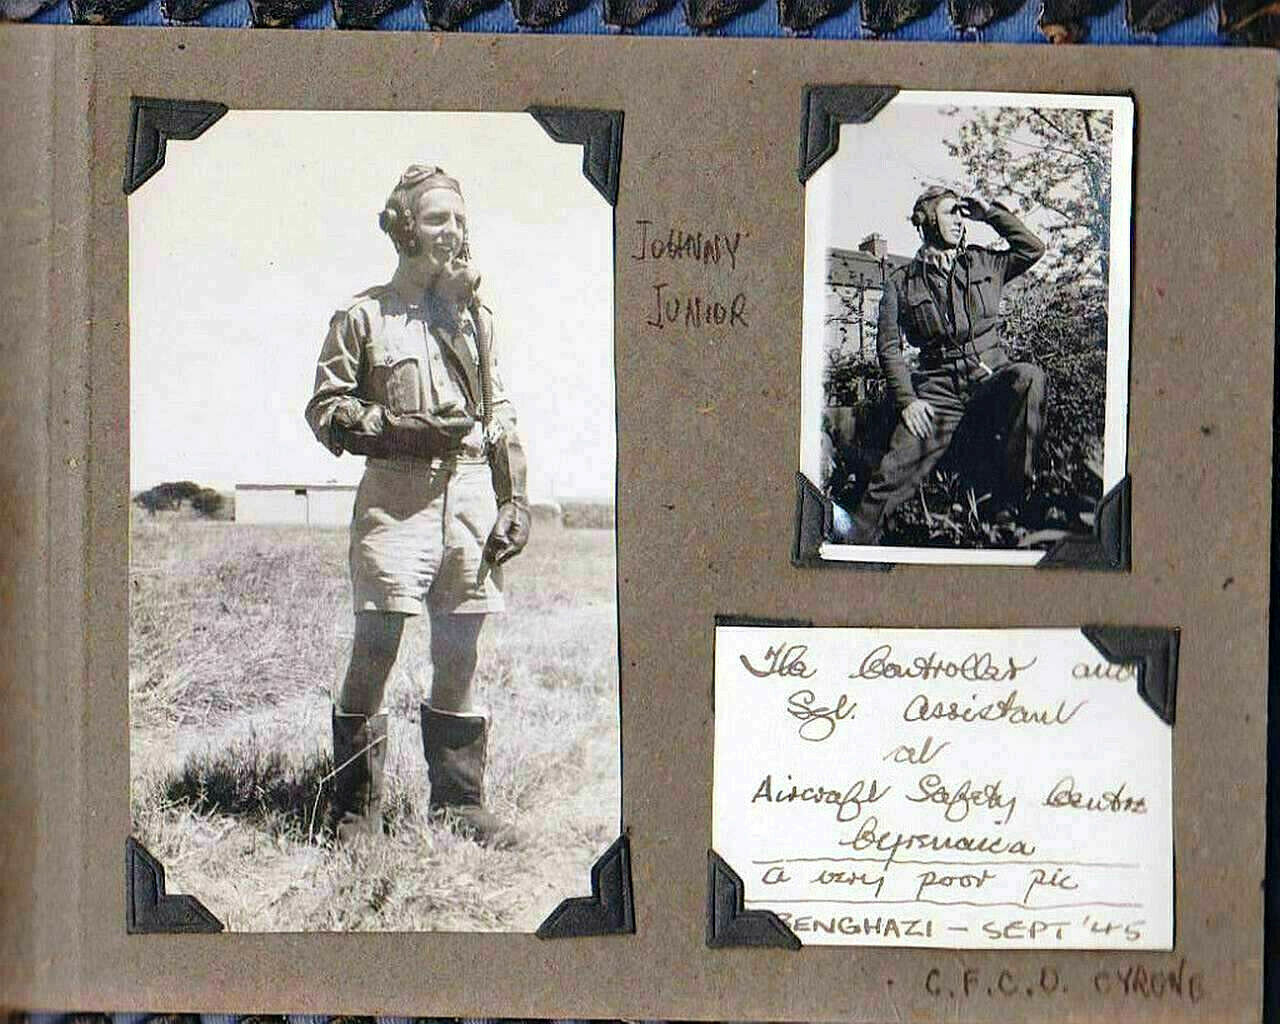 JOHNNY
JUNIOR
The Controller and
Sgt. Assistant
at
Aircraft Safety Centre
Cyrenaica
a very poor pic
BENGHAZI - SEPT '45
C.F.C.U. CYRENE